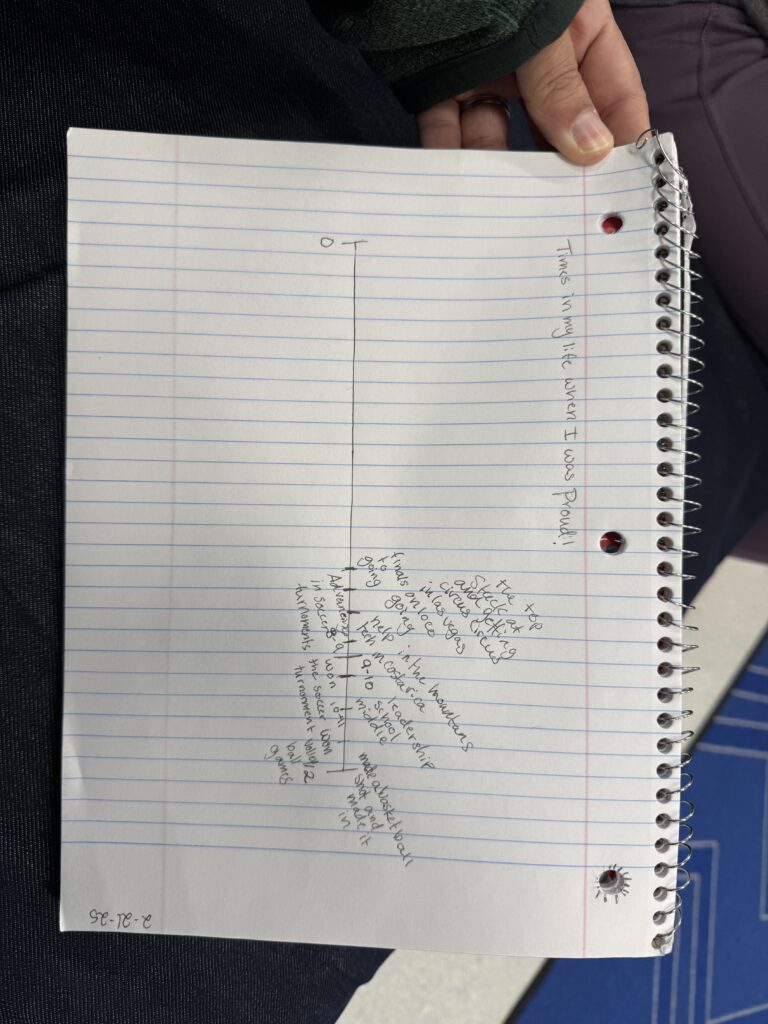 Times in my life when I was Proud!
going
to
finals
going
on loco
in las vegas
circus circus
and getting
Stuck at
the top
help in the mountans
tech in costarica
middle
school
leadership
made a basketball
shot and
made it
in
0
9-10
10-11
12
Advancing
in soccer
turnoments
won
the soccer
turnorment
won
ball
games
2-21-25